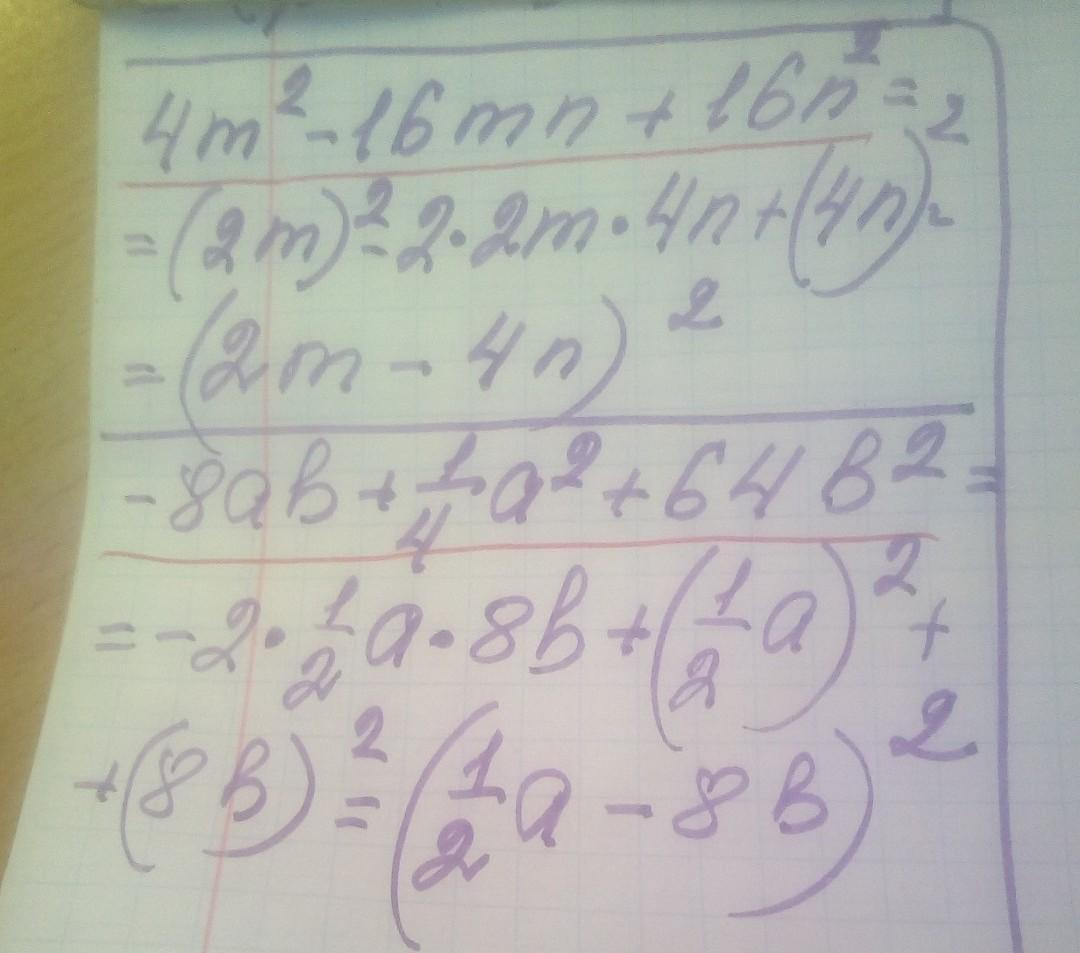 4m² - 16mn + 16n² =
= (2m)² - 2·2m·4n + (4n)² =
= (2m - 4n)²
- 8ab + 1/4 a² + 64b² =
= - 2·1/2 a·8b + (1/2 a)² +
+ (8b)² = (1/2 a - 8b)²